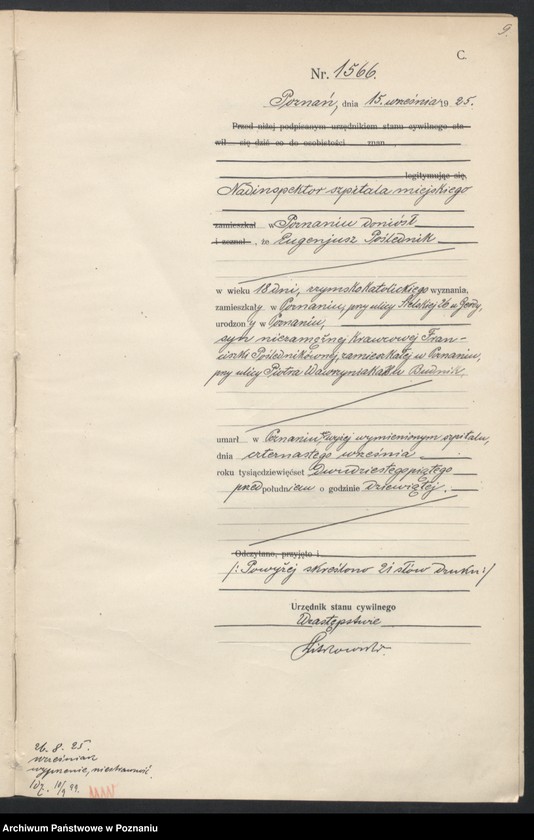 9.
C.
Nr. 1566.
Poznań, dnia 15. września 1925.
Przed niżej podpisanym urzędnikiem stanu cywilnego sta-
wił się dziś co do osobistości znan
legitymując się,
Nadinspektor szpitala miejskiego
zamieszkał w Poznaniu doniósł
i zeznał, że Eugenjusz Poślednik
w wieku 18 dni, rzymskokatolickiego wyznania,
zamieszkały w Poznaniu, przy ulicy 26 u
urodzony w Poznaniu,
syn niezamężnej krawcowej Fran-
ciszki Poślednikówny, zamieszkałej w Poznaniu,
przy ulicy Piotra Wawrzyniaka u Budnik.
umarł w Poznaniu wyżej wymienionym szpitalu,
dnia czternastego września
roku tysiącdziewięćset dwudziestegopiątego
przed południem o godzinie dziewiątej.
Odczytano, przyjęto i
/: Powyżej skreślono 21 słów druku :/
Urzędnik stanu cywilnego
W zastępstwie
26. 8. 25.
wrześniak
niestrawność.
Archiwum Państwowe w Poznaniu